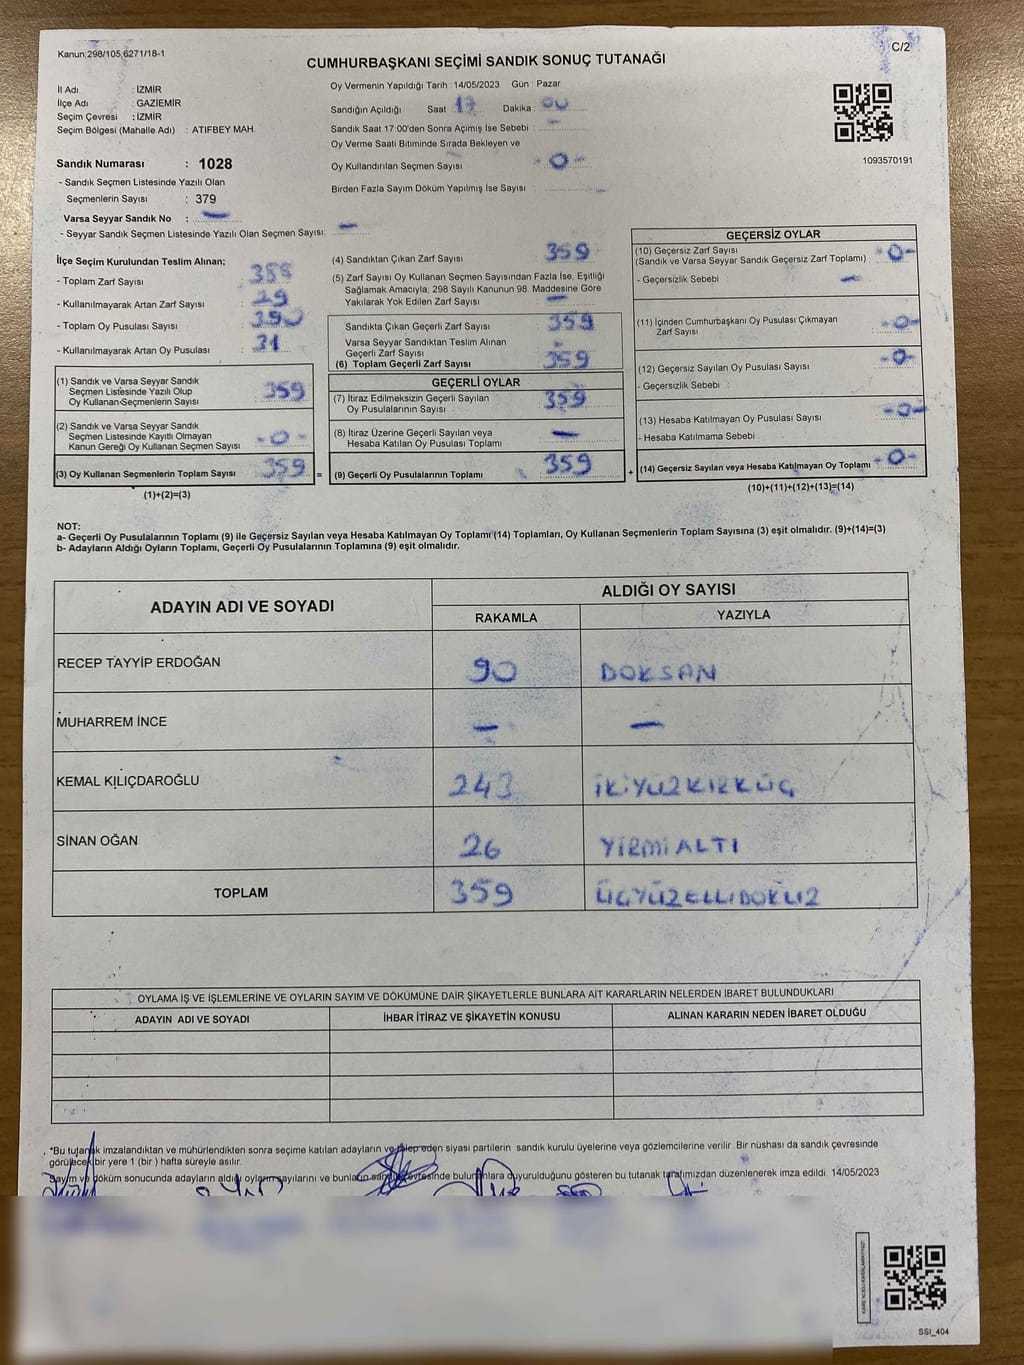 Kanun,298/105,6271/18-1
C/2
CUMHURBAŞKANI SEÇİMİ SANDIK SONUÇ TUTANAĞI
İl Adı : İZMİR
İlçe Adı : GAZİEMİR
Seçim Çevresi : İZMİR
Seçim Bölgesi (Mahalle Adı) : ATIFBEY MAH.
Oy Vermenin Yapıldığı Tarih : 14/05/2023 Gün : Pazar
Sandığın Açıldığı Saat 17 Dakika : 00
Sandık Saat 17:00'den Sonra Açımış İse Sebebi : –
Oy Verme Saati Bitiminde Sırada Bekleyen ve
Oy Kullandırılan Seçmen Sayısı : - 0 -
Birden Fazla Sayım Döküm Yapılmış İse Sayısı :
1093570191
Sandık Numarası : 1028
- Sandık Seçmen Listesinde Yazılı Olan
Seçmenlerin Sayısı : 379
Varsa Seyyar Sandık No : –
- Seyyar Sandık Seçmen Listesinde Yazılı Olan Seçmen Sayısı: –
İlçe Seçim Kurulundan Teslim Alınan;
- Toplam Zarf Sayısı : 388
- Kullanılmayarak Artan Zarf Sayısı : 29
- Toplam Oy Pusulası Sayısı : 390
- Kullanılmayarak Artan Oy Pusulası : 31
(1) Sandık ve Varsa Seyyar Sandık
Seçmen Listesinde Yazılı Olup
Oy Kullanan Seçmenlerin Sayısı : 359
(2) Sandık ve Varsa Seyyar Sandık
Seçmen Listesinde Kayıtlı Olmayan
Kanun Gereği Oy Kullanan Seçmen Sayısı : - 0 -
(3) Oy Kullanan Seçmenlerin Toplam Sayısı : 359 =
(1)+(2)=(3)
(4) Sandıktan Çıkan Zarf Sayısı : 359
(5) Zarf Sayısı Oy Kullanan Seçmen Sayısından Fazla İse, Eşitliği
Sağlamak Amacıyla; 298 Sayılı Kanunun 98. Maddesine Göre
Yakılarak Yok Edilen Zarf Sayısı : –
Sandıkta Çıkan Geçerli Zarf Sayısı : 359
Varsa Seyyar Sandıktan Teslim Alınan
Geçerli Zarf Sayısı : -
(6) Toplam Geçerli Zarf Sayısı : 359
GEÇERLİ OYLAR
(7) İtiraz Edilmeksizin Geçerli Sayılan
Oy Pusulalarının Sayısı : 359
(8) İtiraz Üzerine Geçerli Sayılan veya
Hesaba Katılan Oy Pusulası Toplamı : –
(9) Geçerli Oy Pusulalarının Toplamı : 359 +
GEÇERSİZ OYLAR
(10) Geçersiz Zarf Sayısı
(Sandık ve Varsa Seyyar Sandık Geçersiz Zarf Toplamı) : - 0 -
- Geçersizlik Sebebi : –
(11) İçinden Cumhurbaşkanı Oy Pusulası Çıkmayan
Zarf Sayısı : - 0 -
(12) Geçersiz Sayılan Oy Pusulası Sayısı : - 0 -
- Geçersizlik Sebebi :
(13) Hesaba Katılmayan Oy Pusulası Sayısı : - 0 -
- Hesaba Katılmama Sebebi :
(14) Geçersiz Sayılan veya Hesaba Katılmayan Oy Toplamı : - 0 -
(10)+(11)+(12)+(13)=(14)
NOT:
a- Geçerli Oy Pusulalarının Toplamı (9) ile Geçersiz Sayılan veya Hesaba Katılmayan Oy Toplamı (14) Toplamları, Oy Kullanan Seçmenlerin Toplam Sayısına (3) eşit olmalıdır. (9)+(14)=(3)
b- Adayların Aldığı Oyların Toplamı, Geçerli Oy Pusulalarının Toplamına (9) eşit olmalıdır.
ADAYIN ADI VE SOYADI
ALDIĞI OY SAYISI
RAKAMLA YAZIYLA
RECEP TAYYİP ERDOĞAN 90 DOKSAN
MUHARREM İNCE – –
KEMAL KILIÇDAROĞLU 243 İKİYÜZKIRKÜÇ
SİNAN OĞAN 26 YİRMİALTI
TOPLAM 359 ÜÇYÜZELLİDOKUZ
OYLAMA İŞ VE İŞLEMLERİNE VE OYLARIN SAYIM VE DÖKÜMÜNE DAİR ŞİKAYETLERLE BUNLARA AİT KARARLARIN NELERDEN İBARET BULUNDUKLARI
ADAYIN ADI VE SOYADI İHBAR İTİRAZ VE ŞİKAYETİN KONUSU ALINAN KARARIN NEDEN İBARET OLDUĞU
*Bu tutanak imzalandıktan ve mühürlendikten sonra seçime katılan adayların ve talep eden siyasi partilerin sandık kurulu üyelerine veya gözlemcilerine verilir. Bir nüshası da sandık çevresinde
görülecek bir yere 1 (bir ) hafta süreyle asılır.
Sayım ve döküm sonucunda adayların aldığı oyların sayılarını ve bunların sandık çevresinde bulunanlara duyurulduğunu gösteren bu tutanak tarafımızdan düzenlenerek imza edildi. 14/05/2023
SSI_404